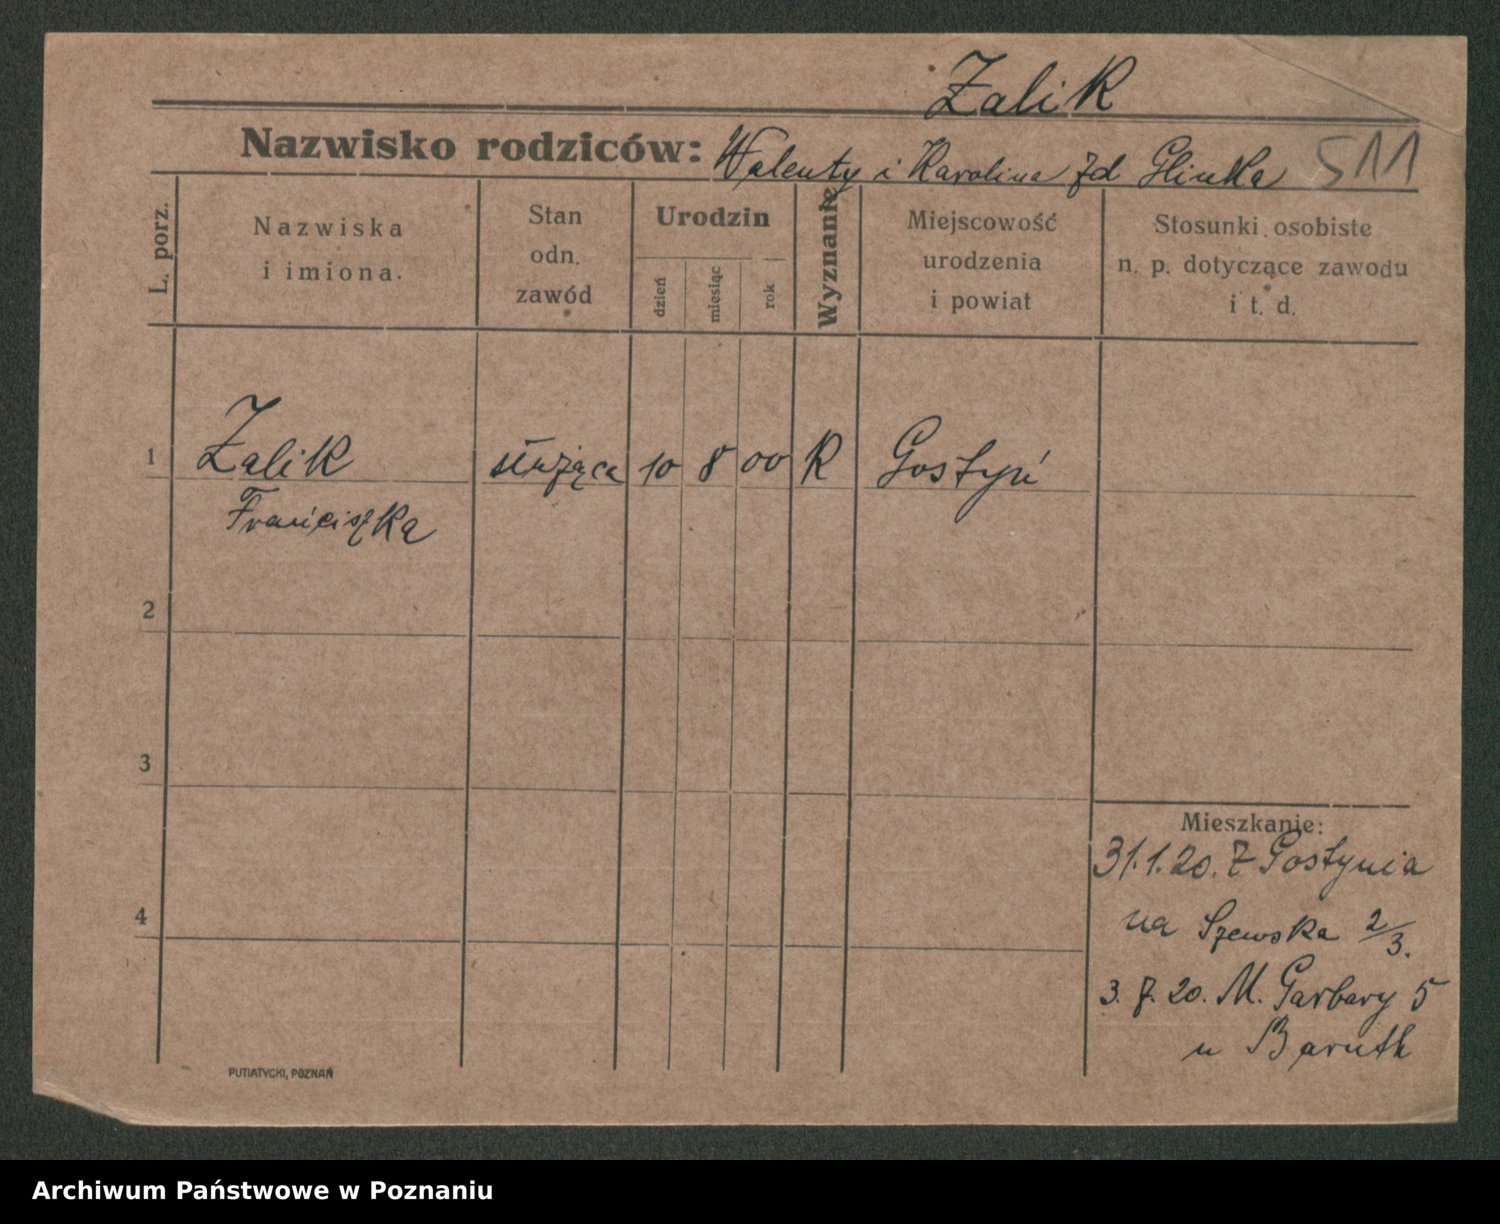 Żalik
Nazwisko rodziców: Walenty i Karolina zd Glinka 511
L. porz.
Nazwiska
i imiona.
Stan
odn.
zawód
Urodzin
dzień
miesiąc
rok
Wyznanie
Miejscowość
urodzenia
i powiat
Stosunki osobiste
n. p. dotyczące zawodu
i t. d.
1 Żalik służąca 10 8 00 K Gostyń
Franciszka
2
3
4
Mieszkanie:
31.1.20. z Gostynia
na Szewska 2/3.
3. 7. 20. M. Garbary 5
u Baruth
PUTIATYCKI, POZNAŃ
Archiwum Państwowe w Poznaniu